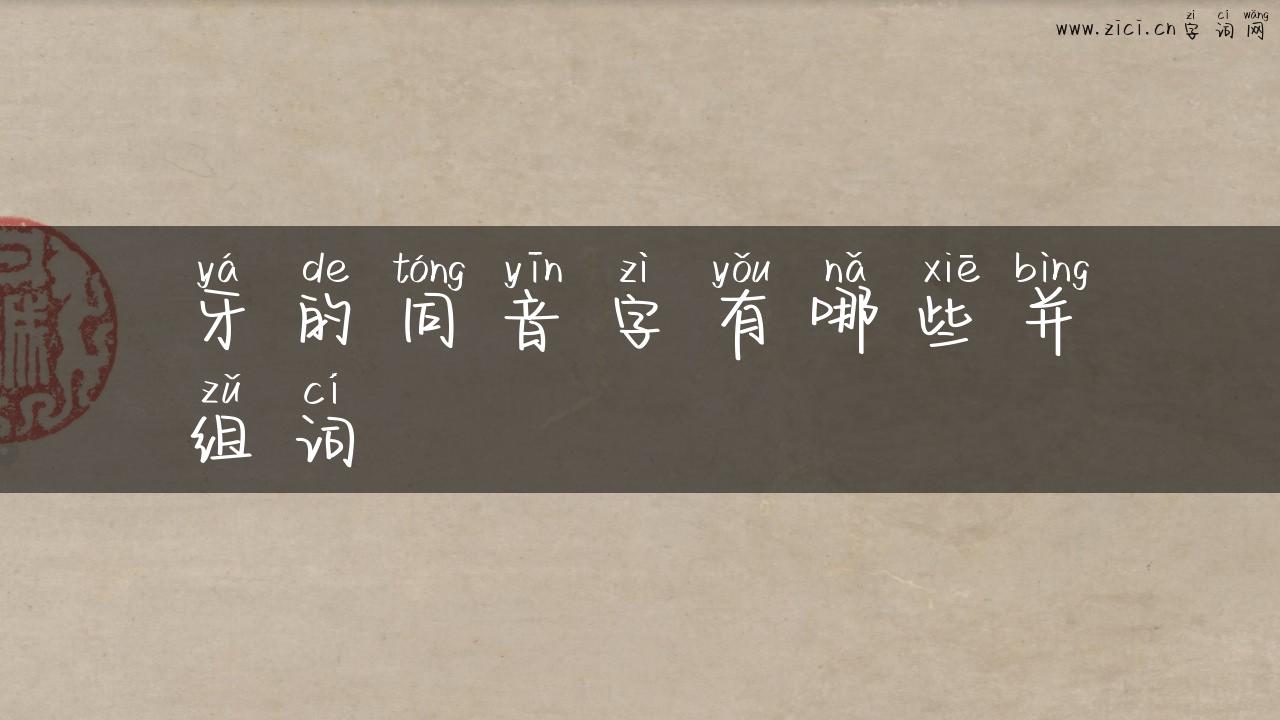 zì cí wǎng
www.zici.cn 字词网
yá de tóng yīn zì yǒu nǎ xiē bìng
牙的同音字有哪些并
zǔ cí
组词